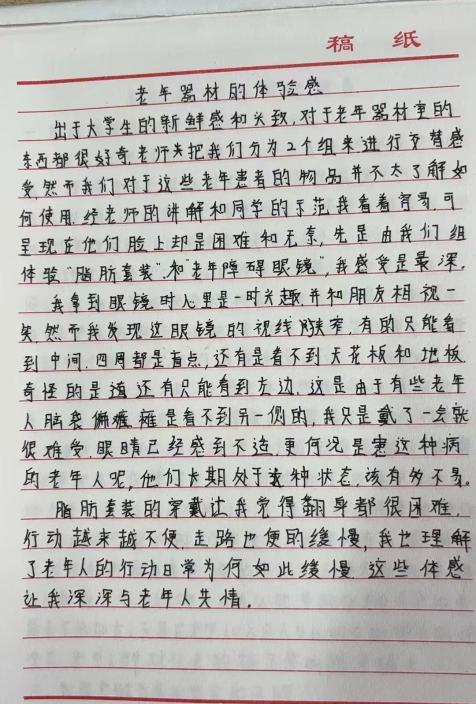 稿 纸
老年器材的体验感
出于大学生的新鲜感和兴致,对于老年器材里的
东西都很好奇,老师先把我们分为2个组来进行交替感
受,然而我们对于这些老年患者的物品并不太了解如
何使用,经老师的讲解和同学的示范,我看着容易,可
呈现在他们脸上却是困难和无奈,先是由我们组
体验“脂肪套装”和“老年障碍眼镜”,我感受是最深。
我拿到眼镜时心里是一时兴趣并和朋友相视一
笑,然而我发现这眼镜的视线狭窄,有的只能看
到中间,四周都是盲点,还有是看不到天花板和地板
奇怪的是还有只能看到左边,这是由于有些老年
人脑袋偏瘫是看不到另一侧的,我只是戴了一会就
很难受,眼睛已经感到不适,更何况是患这种病
的老年人呢,他们长期处于这种状态,该有多不易。
脂肪套装的穿戴让我觉得翻身都很困难,
行动越来越不便,走路也便的缓慢,我也理解
了老年人的行动日常为何如此缓慢,这些体感
让我深深与老年人共情。